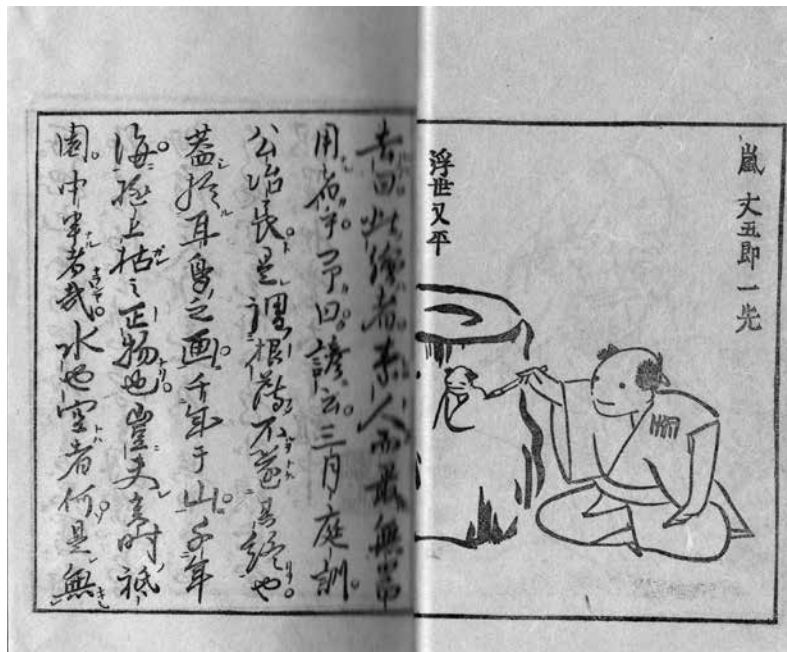 嵐 丈五郎一先
浮世又平
者曰此後者素人而最無常
用者乎予曰諺云三月庭訓
公冶長是謂根薄不遂其終也
蓋於耳鳥之画千年于山千年
海極上枯之正物也豈夫言時祗
園中半者哉水也空者何是無